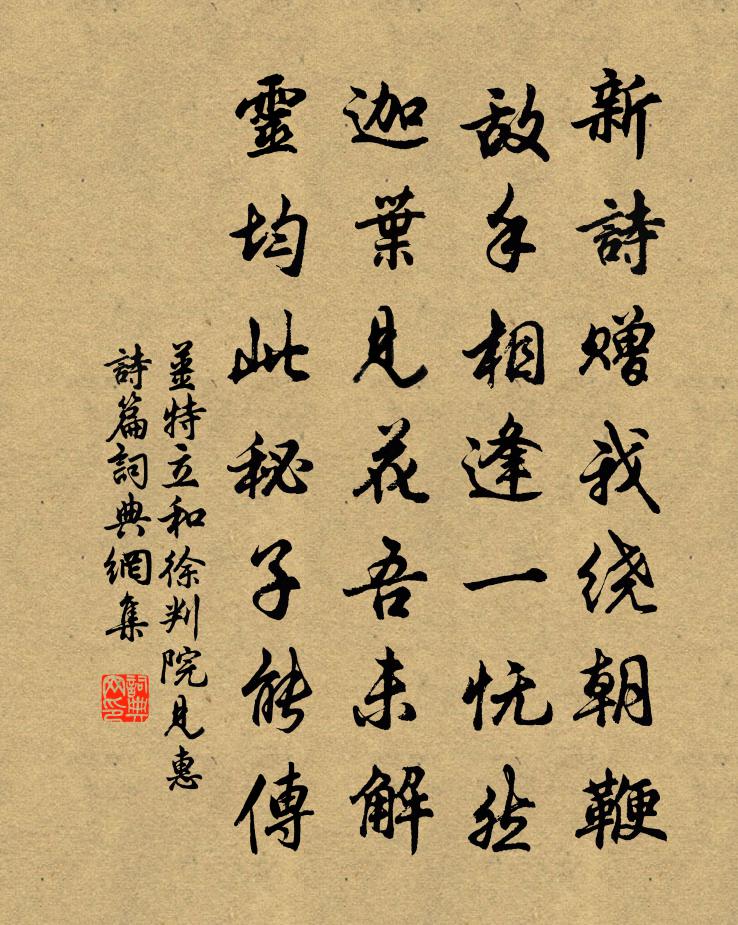 新詩赠我绕朝鞭
敌手相逢一怃然
迦葉見花吾未解
靈均此秘子能傳
薑特立和徐判院見惠
詩篇詞典網集
詞典